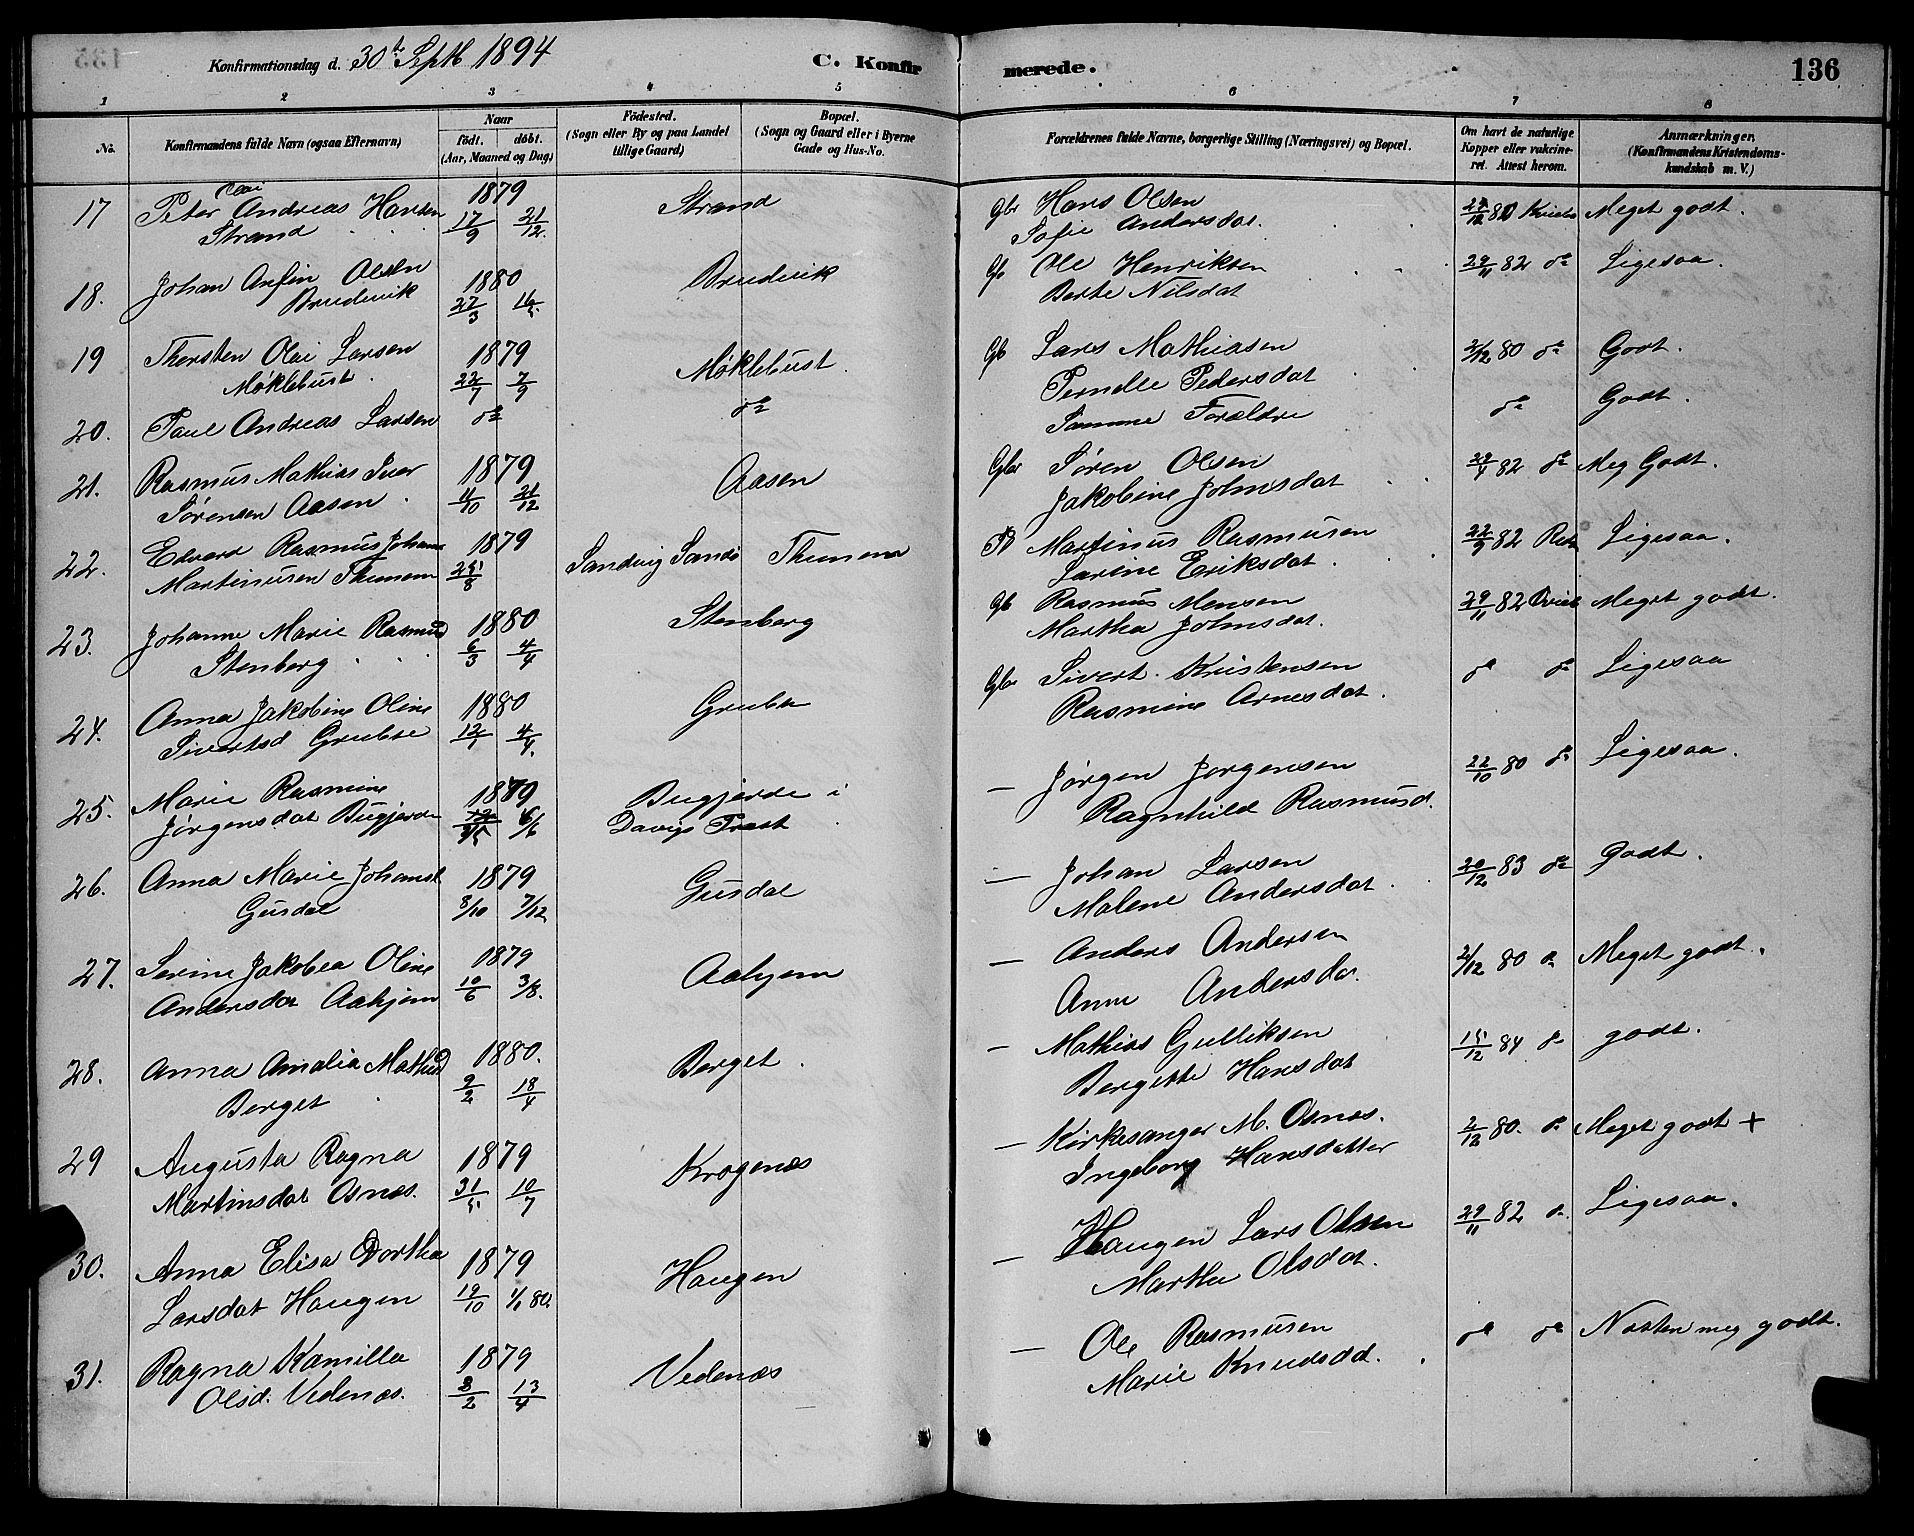 Konfirmationsdag d. 30te Septb 1894 C. Konfirmerede. 136
1 2 3 4 5 6 7 8
No. Konfirmandens fulde Navn (ogsaa Efternavn) Naar født. døbt. (Aar, Maaned og Dag) Fødested. (Sogn eller By og paa Landet tillige Gaard) Bopæl. (Sogn og Gaard eller i Byerne Gade og Hus-No. Forældrenes fulde Navne, borgerlige Stilling (Næringsvei) og Bopæl. Om havt de naturlige Kopper eller vakcineret. Attest herom. Anmærkninger. (Konfirmandens Kristendomskundskab m. V.)
17 Peter Olai Andreas Hansen 1879 Strand Gbr Hans Olsen 80 Meget godt.
Strand 17/9 21/12 Sofie Andersdat.
18. Johan Anfin Olsen 1880 Brudevik Gb Ole Henriksen 29/11 82 do Ligesaa.
Brudevik 27/3 16/5 Berte Nilsdat
19 Thorsten Olai Larsen 1879 Møklebust. Gb Lars Mathiasen 2/12 80 do Godt.
Møklebust. 22/7 7/9 Pernelle Pedersdat
20. Paul Andreas Larsen do do Samme Forældre do Godt.
21. Rasmus Mathias Iver 1879 Aasen Gbr Søren Olsen 29/4 82 do Meg Godt.
Sørensen Aasen. 11/10 21/12 Jakobine Johnsdat
22. Edvard Rasmus Johann 1879 Sandvig Sandö Thunem Martinus Rasmusen 22/9 82 Ligesaa.
Martinusen Thunem 25/8 Larine Eriksdat
23. Johanne Marie Rasmusd 1880 Stenberg Gb Rasmus Monsen 29/11 82 Meget godt.
Stenberg 6/3 4/4 Martha Johnsdat.
24. Anna Jakobine Oline 1880 Grubse Gbr Sivert Kristensen do do Ligesaa
Sivertsd Grubse 12/1 4/4. Rasmine Arnesdat.
25. Marie Rasmine 1879 Bugjerde i — Jørgen Jørgensen 22/10 80 do Ligesaa.
Jørgensdat Bugjerde 6/6 Davigs Præst Ragnhild Rasmusd.
26. Anna Marie Johansd 1879 Gusdal — Johan Larsen 20/12 83 do Godt.
Gusdal 8/10 7/12 Malene Andersdat.
27. Serine Jakobea Oline 1879 Aahjem — Anders Andersen 2/12 80 do Meget godt.
Andersdat Aahjem 10/6 3/8. Anne Andersdat
28. Anna Amalia Mathiasd 1880. Berget. — Mathias Gulliksen 15/12 84 do godt.
Berget 9/2 18/4 Bergitte Hansdat
29 Augusta Ragna 1879 Krogenæs — Kirkesanger M. Osnæs. 2/12 80. do Meget godt +
Martinsdat Osnæs. 31/5 10/7 Ingeborg Hansdatter
30. Anna Elisa Dorthea 1879 Haugen — Haugen Lars Olsen 29/11 82 do Ligesaa.
Larsdat Haugen 19/10 1/1 80. Martha Olsdat.
31. Ragna Kamilla 1879 Vedenæs — Ole Rasmusen do do Næsten meg godt.
Olsd. Vedenæs. 3/2 13/4 Marie Knudsdd.